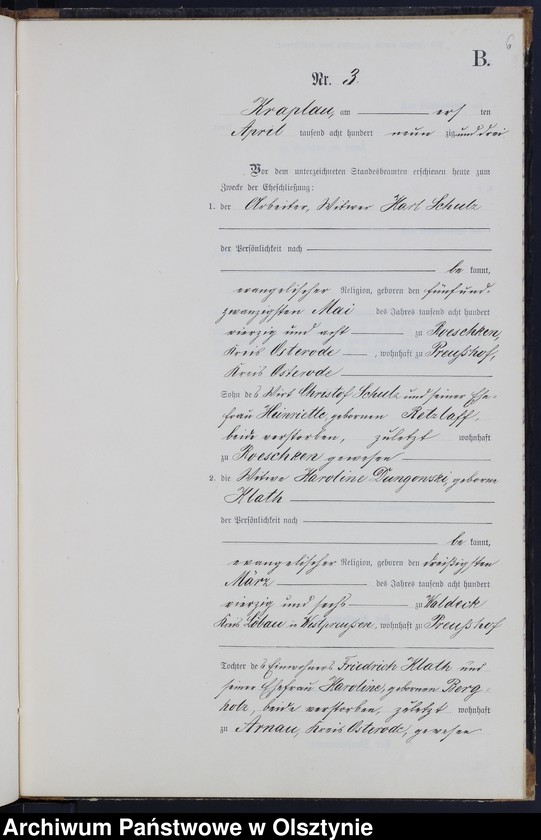 6
B.
Nr. 3.
Kraplau, am ersten
April tausend acht hundert neunzig und drei
Vor dem unterzeichneten Standesbeamten erschienen heute zum
Zwecke der Eheschließung:
1. der Arbeiter, Witwer Karl Schulz
der Persönlichkeit nach
bekannt,
evangelischer Religion, geboren den fünfund-
zwanzigsten Mai des Jahres tausend acht hundert
vierzig und acht zu Roeschken,
Kreis Osterode, wohnhaft zu Preußhof,
Kreis Osterode
Sohn des Wirts Christof Schulz und seiner Ehe-
frau Heinriette, gebornen Retzlaff,
beide verstorben, zuletzt wohnhaft
zu Roeschken gewesen
2. die Witwe Karoline Dungowski, geborne
Klath
der Persönlichkeit nach
bekannt,
evangelischer Religion, geboren den dreißigsten
März des Jahres tausend acht hundert
vierzig und sechs zu Waldeck
Kreis Löbau in Westpreußen, wohnhaft zu Preußhof
Tochter des Einwohners Friedrich Klath und
seiner Ehefrau Karoline, gebornen Berg-
holz, beide verstorben, zuletzt wohnhaft
zu Arnau, Kreis Osterode, gewesen
Archiwum Państwowe w Olsztynie